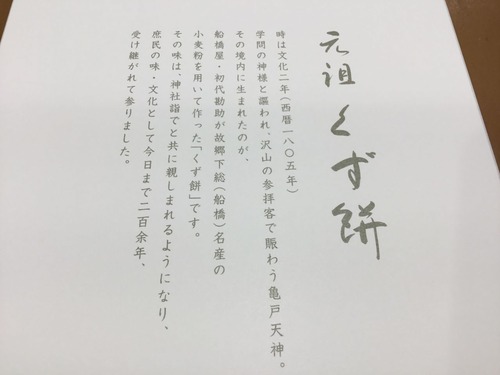 元祖くず餅
時は文化二年（西暦一八〇五年）
学問の神様と謳われ、沢山の参拝客で賑わう亀戸天神。
その境内に生まれたのが、
船橋屋・初代勘助が故郷下総（船橋）名産の
小麦粉を用いて作った「くず餅」です。
その味は、神社詣でと共に親しまれるようになり、
庶民の味・文化として今日まで二百余年、
受け継がれて参りました。